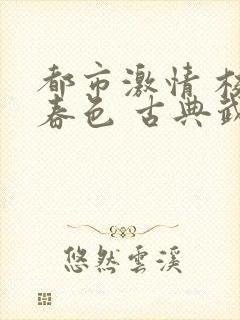 都市激情
春色 古典
悠然雲溪